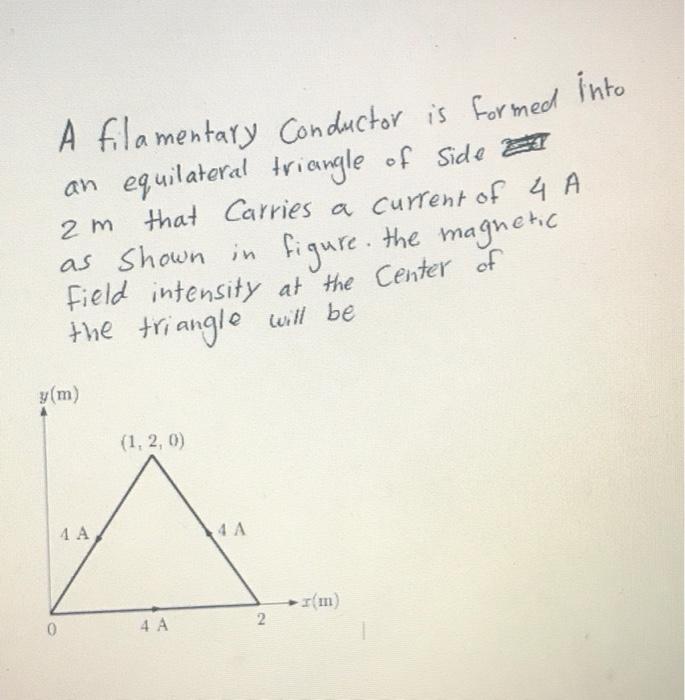 A filamentary Conductor is formed into
an equilateral triangle of side
2 m that Carries a current of 4 A
as shown in figure. the magnetic
field intensity at the Center of
the triangle will be
y(m)
(1, 2, 0)
4 A
4 A
x(m)
0
4 A
2